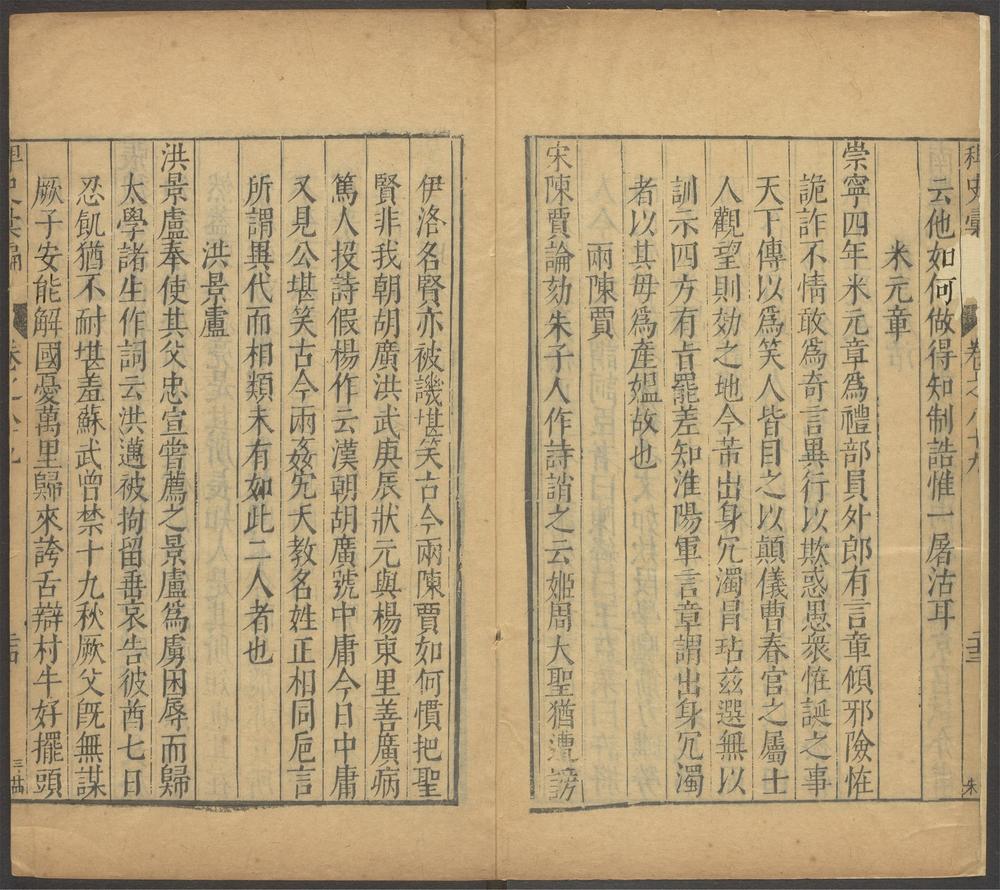 稗史彙
卷之八十九
二十三
朱
云他如何做得知制誥惟一屠沽耳
米元章
崇寧四年米元章爲禮部員外郎有言章傾邪險怪
詭詐不情敢爲奇言異行以欺惑愚衆惟誕之事
天下傳以爲笑人皆目之以顛儀曹春官之屬士
人觀望則効之地今芾出身冗濁冒玷茲選無以
訓示四方有旨罷差知淮陽軍言章謂出身冗濁
者以其母爲產媼故也
兩陳賈
宋陳賈論劾朱子人作詩誚之云姬周大聖猶遭謗
伊洛名賢亦被譏堪笑古今兩陳賈如何慣把聖
賢非我朝胡廣洪武庚辰狀元與楊東里善廣病
篤人投詩假楊作云漢朝胡廣號中庸今日中庸
又見公堪笑古今兩姦宄天教名姓正相同巵言
所謂異代而相類未有如此二人者也
洪景盧
洪景盧奉使其父忠宣嘗薦之景盧爲虜困辱而歸
太學諸生作詞云洪邁被拘留垂哀告彼酋七日
忍飢猶不耐堪羞蘇武曾禁十九秋厥父旣無謀
厥子安能解國憂萬里歸來誇舌辯村牛好擺頭
卷之八十九
二十四